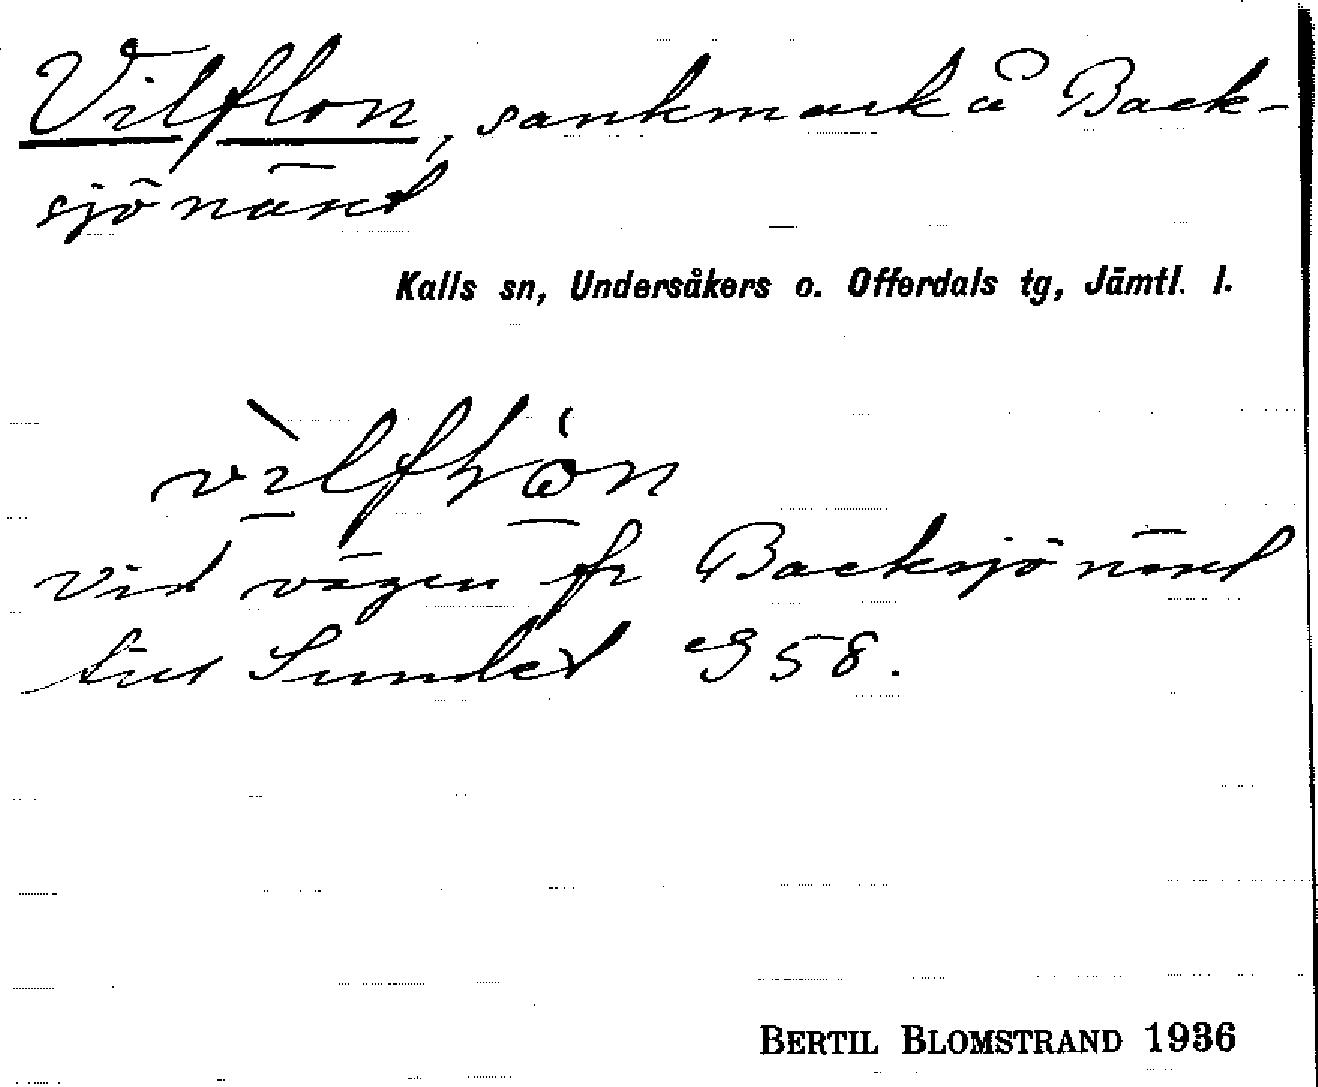 Vilflon, sankmark å Back-
sjönäset
Kalls sn, Undersåkers o. Offerdals tg, Jämtl. l.
vid vägen fr Backsjönäset
till Sundet S 58.
BERTIL BLOMSTRAND 1936